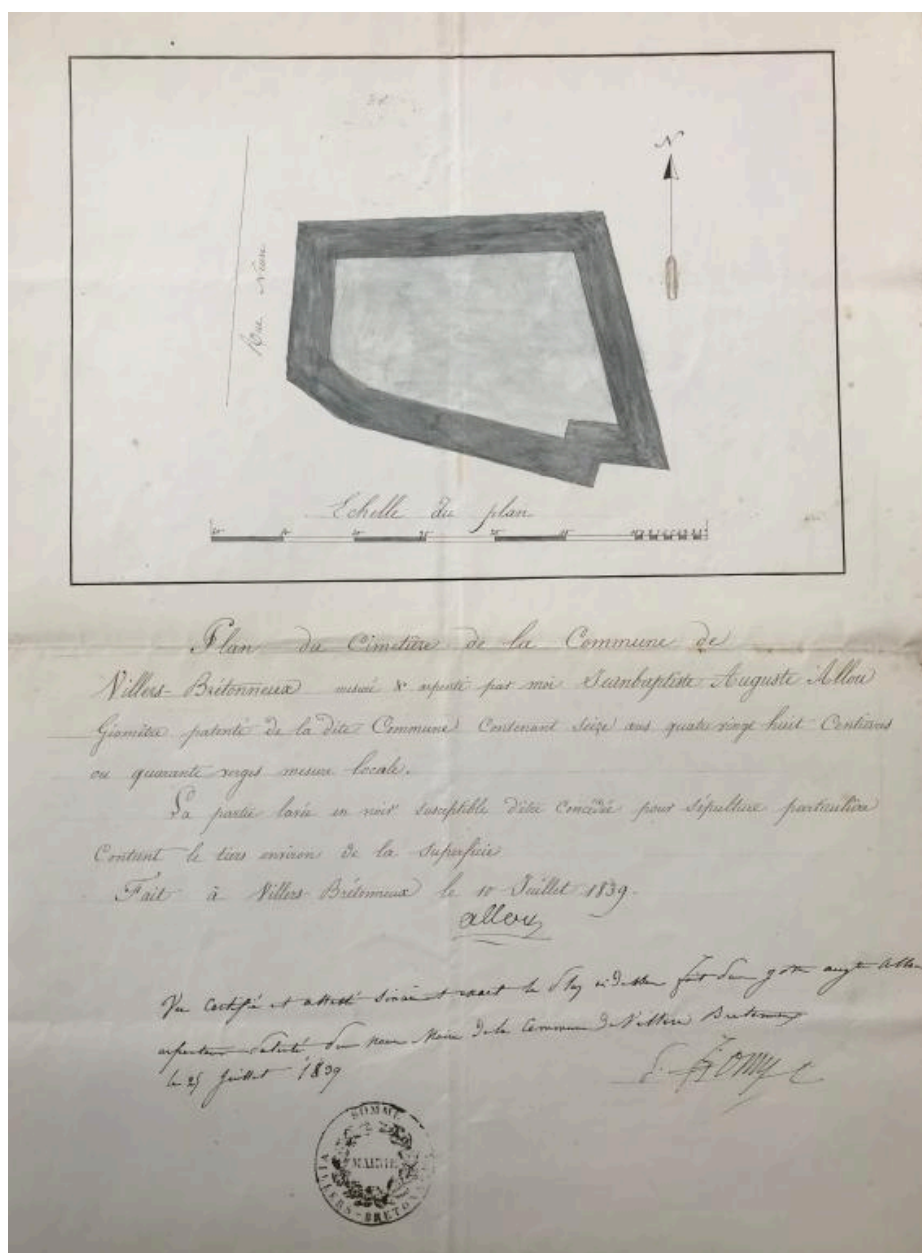 N
Rue Neuve
Echelle du plan
Plan du Cimetière de la Commune de
Villers-Brétonneux mesuré & arpenté par moi Jeanbaptiste Auguste Allou
Géomètre patenté de la dite Commune Contenant Seize ares quatre vingt huit Centiares
ou quarante verges mesure locale.
La partie lavée en noir susceptible d'être concédée pour sépulture particulière
Contient le tiers environ de la superficie
Fait à Villers-Brétonneux le 10 Juillet 1839.
allou
Vu Certifié et attesté Sincère et exact le
arpenteur Maire de la Commune de Villers Bretonneux
le 25 Juillet 1839
SOMME
MAIRIE
VILLERS-BRETONNEUX